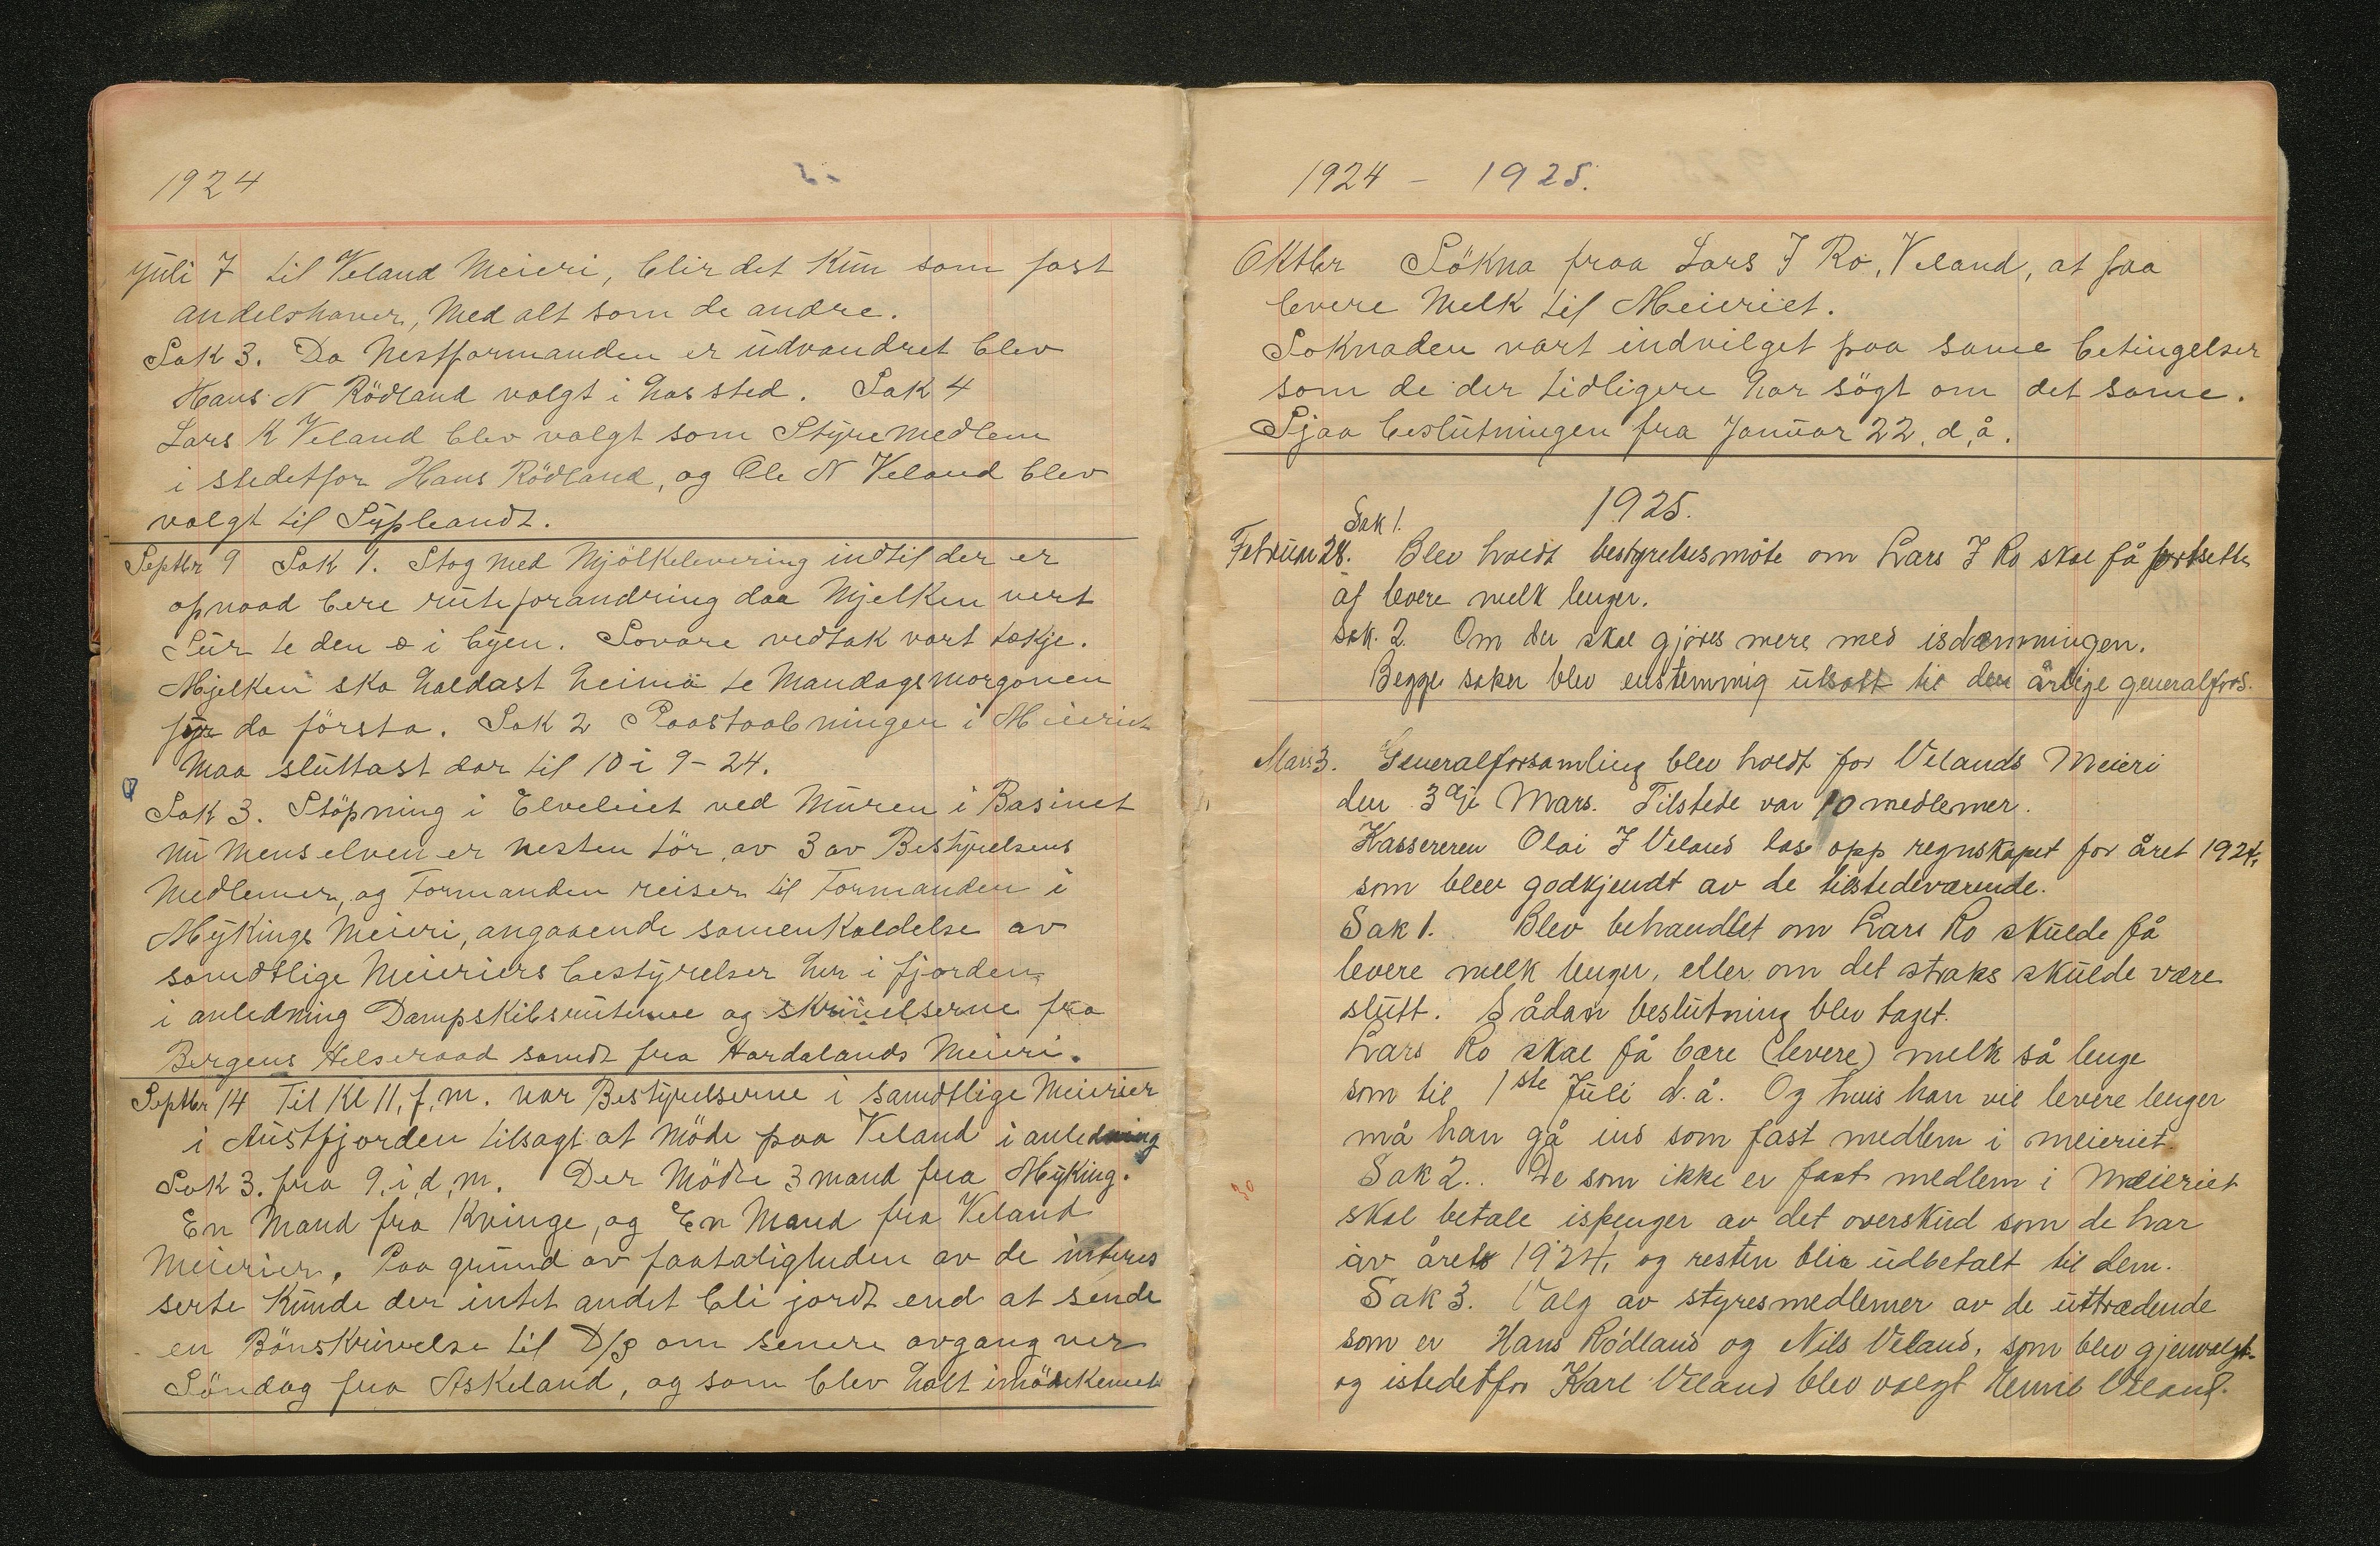 1924
Juli 7 til Veland Meieri, blir det kun som fast
andelshaver, Med alt som de andre.
Sak 3. Da Nestformanden er udvandret blev
Hans N Rödland valgt i has sted. Sak 4
Lars K Veland blev valgt som Styremedlem
i stedetfor Hans Rödland, og Ole N Veland blev
valgt til Supleandt.
Septbr 9 Sak 1. Stog med Mjölkelevering indtil der er
opnaad bere ruteforandring daa Mjelken vert
Sur te den e i byen. Sovore vedtak vart tekje.
Mjelken ska haldast heima te Mandagsmorgonen
fyr da første. Sak 2 Paastaabningen i Meieriet
Maa sluttast dor til 10 i 9-24.
Sak 3. Stöpning i Elveleiet ved Muren i Basinet
nu Mens elven er nesten tör, av 3 av Bestyrelsens
Medlemer, og Formanden reiser til Formanden i
Mykings Meieri, angaaende samenkaldelse av
samdtlige Meieriers bestyrelser her i fjorden
i anledning Dampskibsruterne og skrivelserne fra
Bergens Helseraad samdt fra Hardalands Meieri.
Septbr 14 Til Kl 11, f, m. var Bestyrelserne i samdtlige Meierier
i Austfjorden tilsagt at Möde paa Veland i anledning
Sak 3. fra 9, i, d, m. Der Mödte 3 mand fra Myking.
En Mand fra Kvinge, og En Mand fra Veland
Meierier. Paa grund av faataligheden av de interes
serte kunde der intet andet bli jordt end at sende
en Bönskrivelse til D/S om senere avgang ver
Söndag fra Askeland, og som blev halt imödekemet
1924 – 1925.
Oktbr Sökna fraa Lars J Ro, Veland, at faa
levere Melk til Meieriet.
Soknaden vart indvilget paa same betingelser
som de der tidligere har sögt om det same.
Sjaa beslutningen fra Januar 22, d, å.
1925.
Sak 1.
Februar 28. Blev holdt bestyrelsesmöte om Lars J Ro skal få fortsette
af levere melk lenger.
Sak. 2. Om der skal gjöres mere med isdæmningen.
Begge saker blev enstemmig utsatt til den årlige generalfors.
Mars 3. Generalforsamling blev holdt for Velands Meieri
den 3dje Mars. Tilstede var 10 medlemer.
Kassereren Olai J Veland las opp regnskapet for året 1924,
som blev godkjendt av de tilstedeværende.
Sak 1. Blev behandlet om Lars Ro skulde få
levere melk lenger, eller om det straks skulde være
slutt. Sådan beslutning blev taget.
Lars Ro skal få bære (levere) melk så lenge
som til 1ste Juli d. å. Og hvis han vil levere lenger
må han gå ind som fast medlem i meieriet.
Sak 2.. De som ikke er fast medlem i Meieriet
skal betale ispenger av det overskud som de har
av året 1924, og resten blir udbetalt til dem.
Sak 3. Valg av styresmedlemer av de uttrædende
som er Hans Rödland og Nils Veland, som blev gjenvalgt.
og istedetfor Karl Veland blev valgt Veland.
30